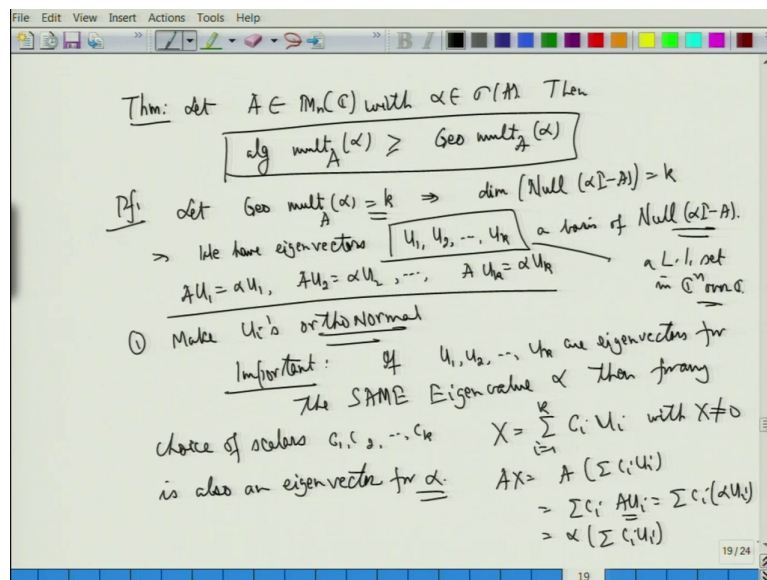 File Edit View Insert Actions Tools Help
Thm: Let A ∈ Mn(ℂ) with α ∈ σ(A). Then
alg mult_A(α) ≥ Geo mult_A(α)
Pf: Let Geo mult_A(α) = k ⇒ dim (Null (αI-A)) = k
⇒ We have eigenvectors U1, U2, ..., Uk a basis of Null (αI-A).
AU1 = αU1, AU2 = αU2, ..., AUk = αUk
a L.I. set
in ℂ^n over ℂ.
① Make Ui's orthoNormal
Important: If U1, U2, ..., Uk are eigenvectors for
the SAME Eigenvalue α then for any
choice of scalars C1, C2, ..., Ck X = Σ_{i=1}^{k} Ci Ui with X≠0
is also an eigenvector for α. AX = A (Σ Ci Ui)
= Σ Ci AUi = Σ Ci (αUi)
= α (Σ Ci Ui)
19/24
19